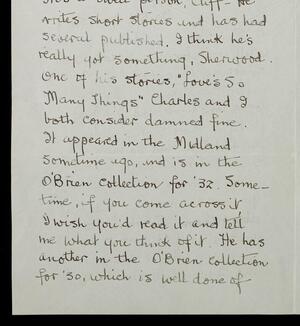 person, Cliff- He
writes short stories and has had
several published. I think he's
really got something, Sherwood.
One of his stories, "Love's So
Many Things" Charles and I
both consider damned fine.
It appeared in the Midland
sometime ago, and is in the
O'Brien collection for '32. Some-
time, if you come across it,
I wish you'd read it and tell
me what you think of it. He has
another in the O'Brien collection
for '30, which is well done of